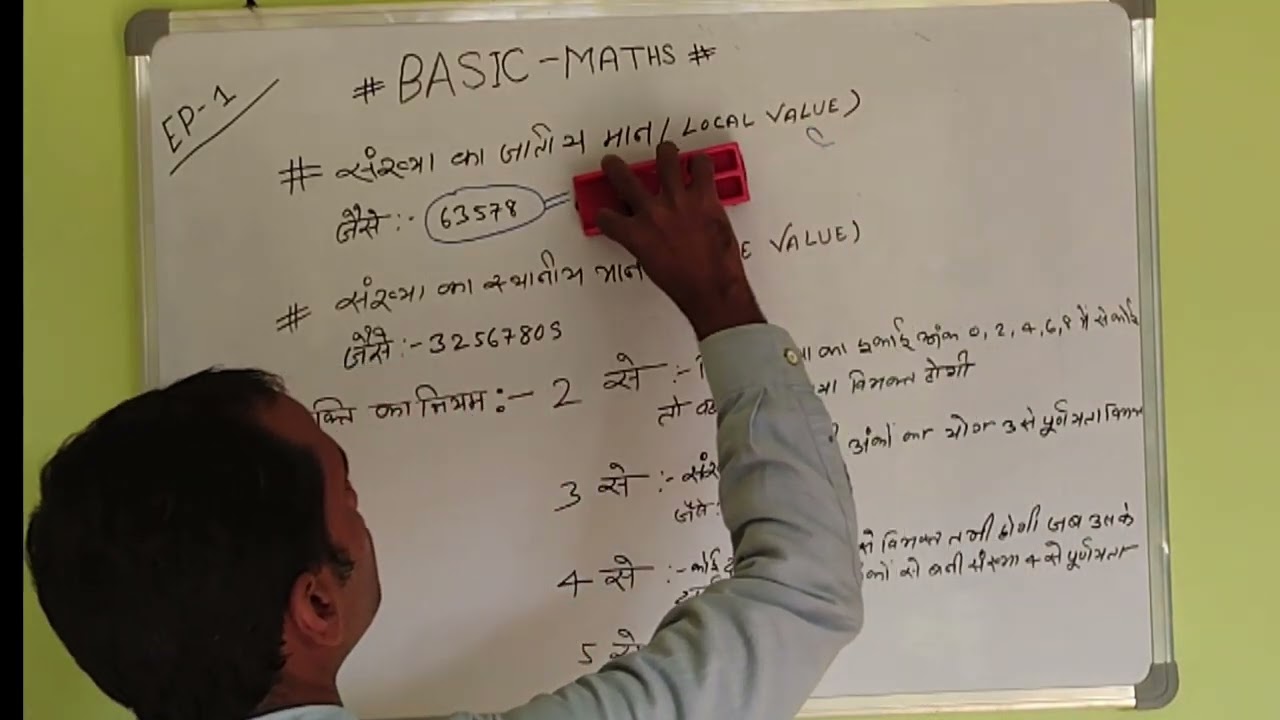 EP-1
# BASIC - MATHS #
# संख्या का जातीय मान / LOCAL VALUE)
जैसे :- 63578 =
# संख्या का स्थानीय मान VALUE)
जैसे :- 32567805
का नियम :- 2 से :- का इकाई अंक 0, 2, 4, 6, 8 में से कोई
तो विभक्त होगी
3 से :- अंकों का योग 3 से पूर्णतया
जैसे :
4 से :- कोई से विभक्त तभी होगी जब उसके
से बनी संख्या 4 से पूर्णतया
5 से